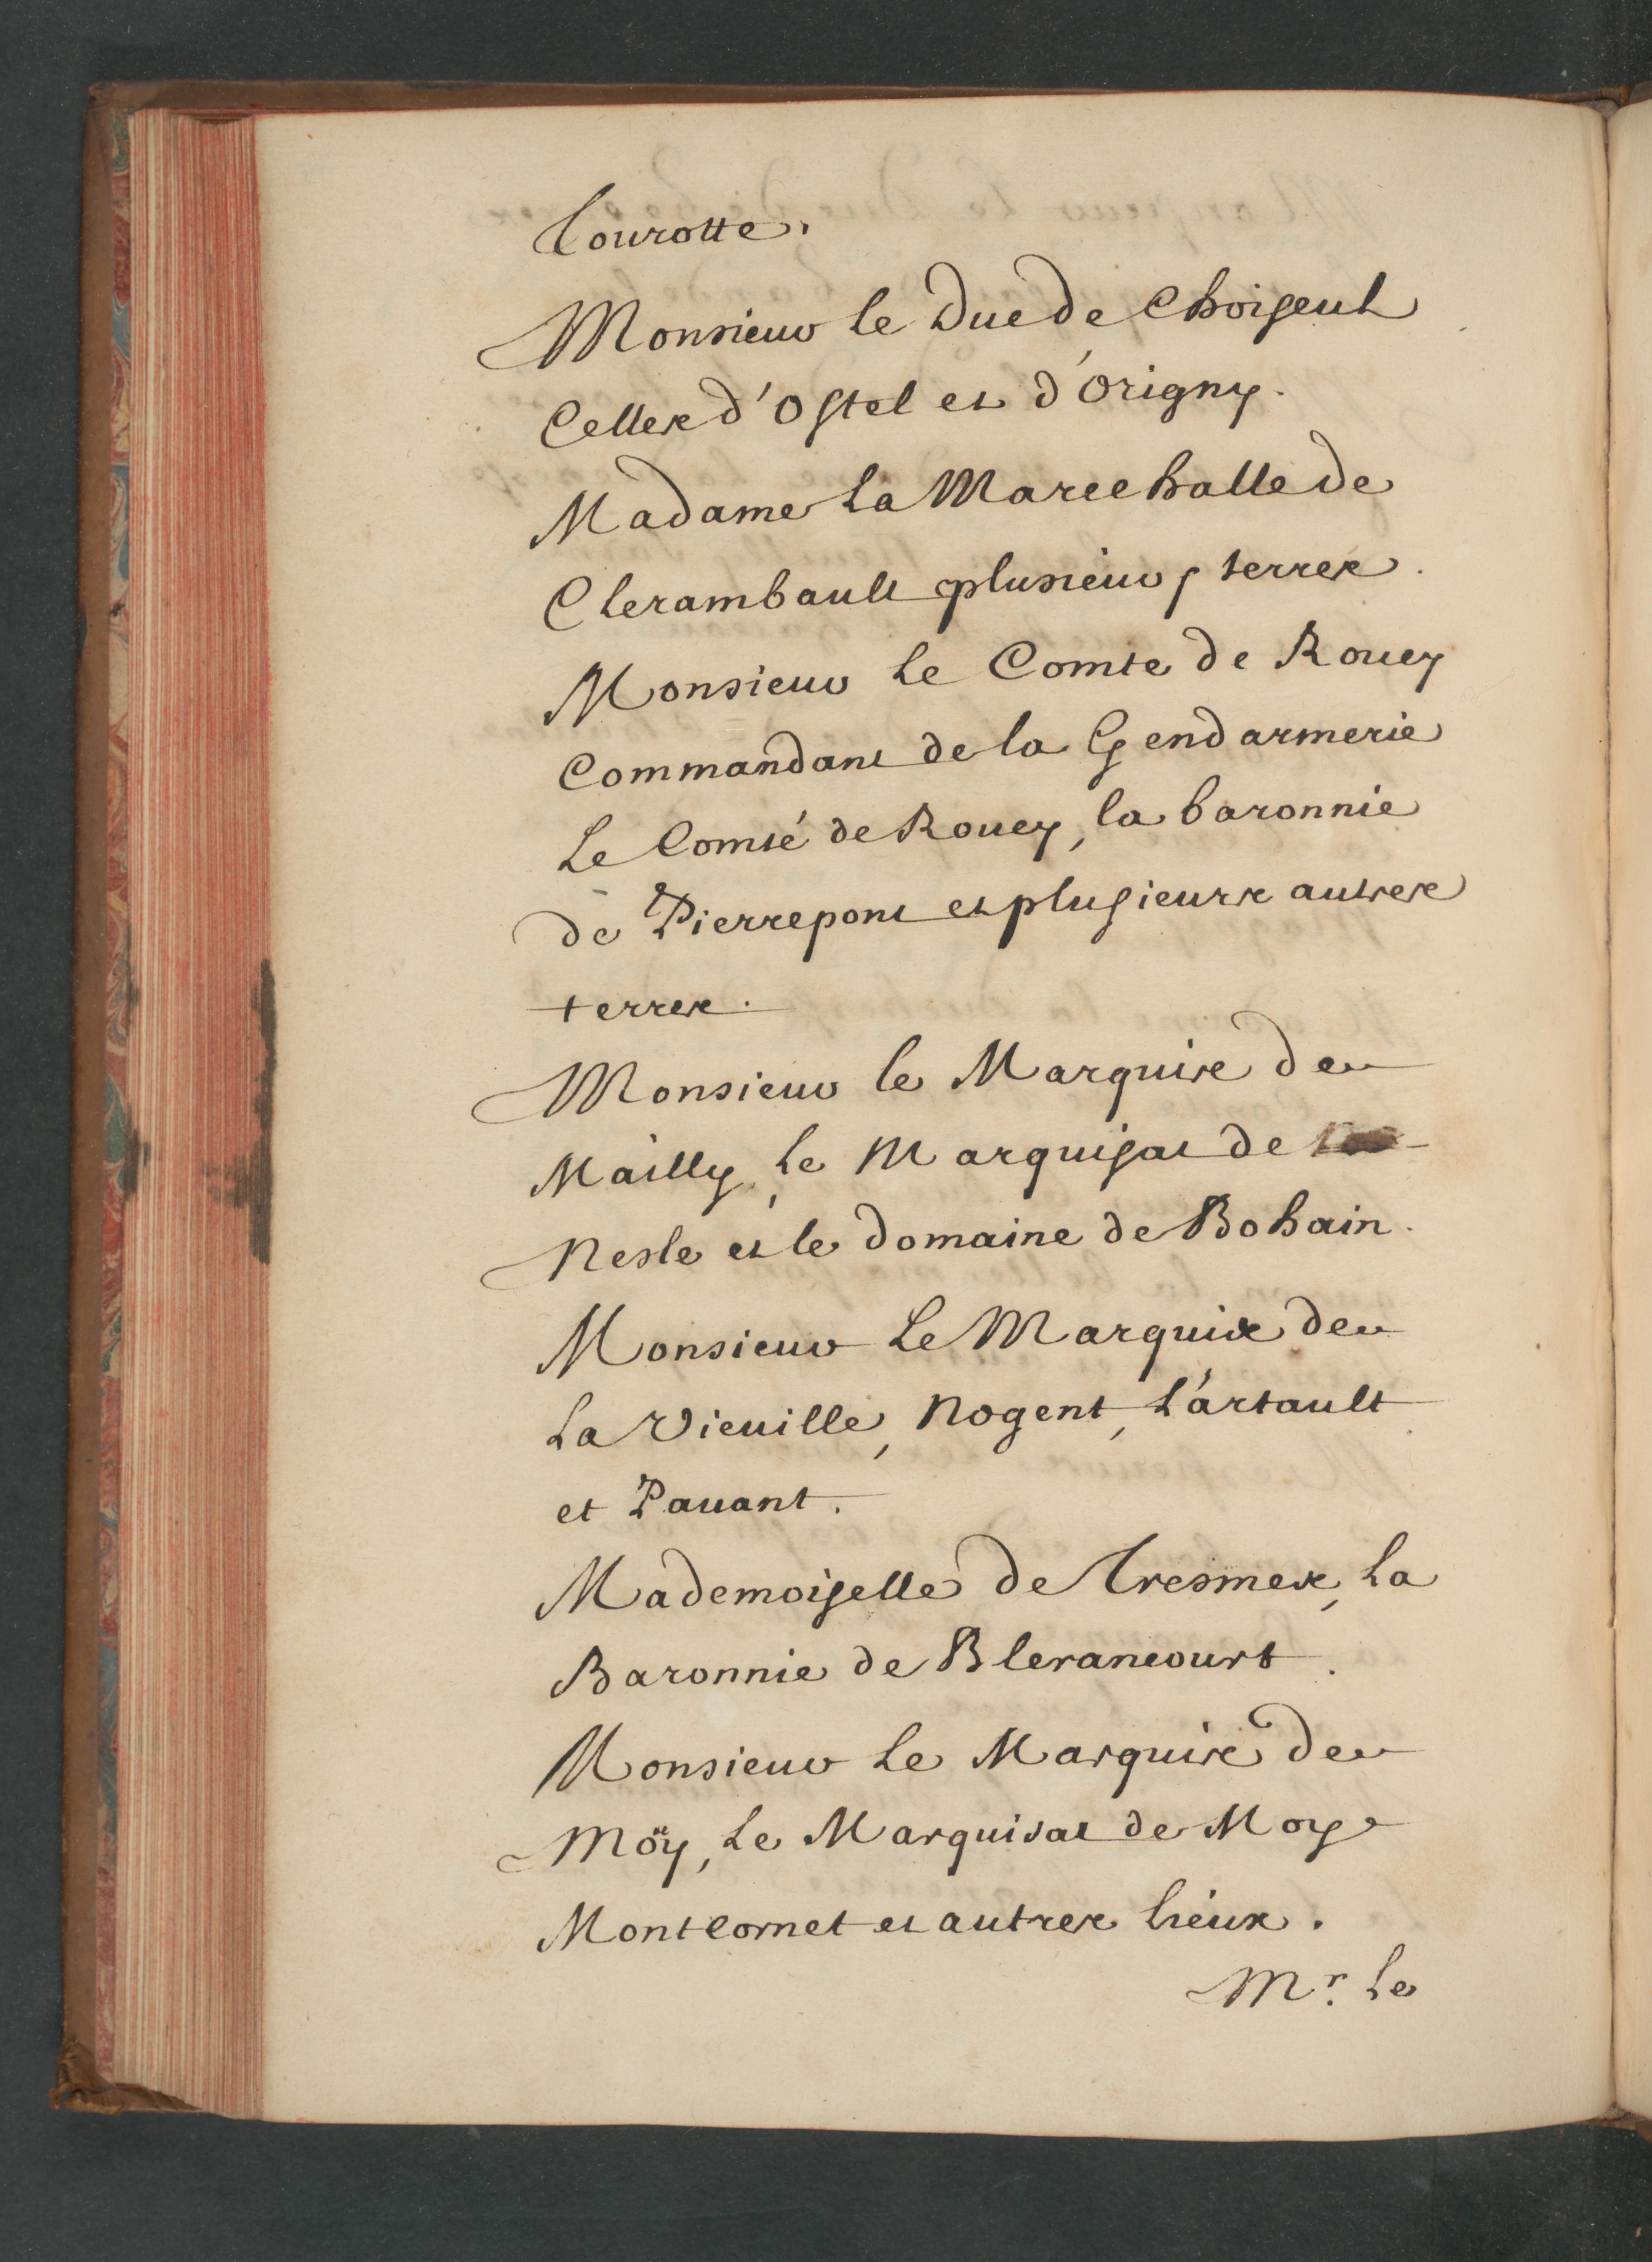 Tourotte.
Monsieur le Duc de Choiseul
Celles d'Ostel et d'Origny.
Madame La Marechalle de
Clerambault plusieurs terres.
Monsieur Le Comte de Roucy
Commandant de la Gendarmerie
Le Comté de Roucy, la baronnie
de Pierrepont et plusieurs autres
terres.
Monsieur le Marquis de
Mailly, Le Marquisat de
Nesle et le domaine de Bohain.
Monsieur Le Marquis de
La Vieuille, Nogent, L'artault
et Pauant.
Mademoiselle de Tresmes, La
Baronnie de Blerancourt.
Monsieur Le Marquis de
Möy, Le Marquisat de Moy
Montcornet et autres lieux.
Mr. Le